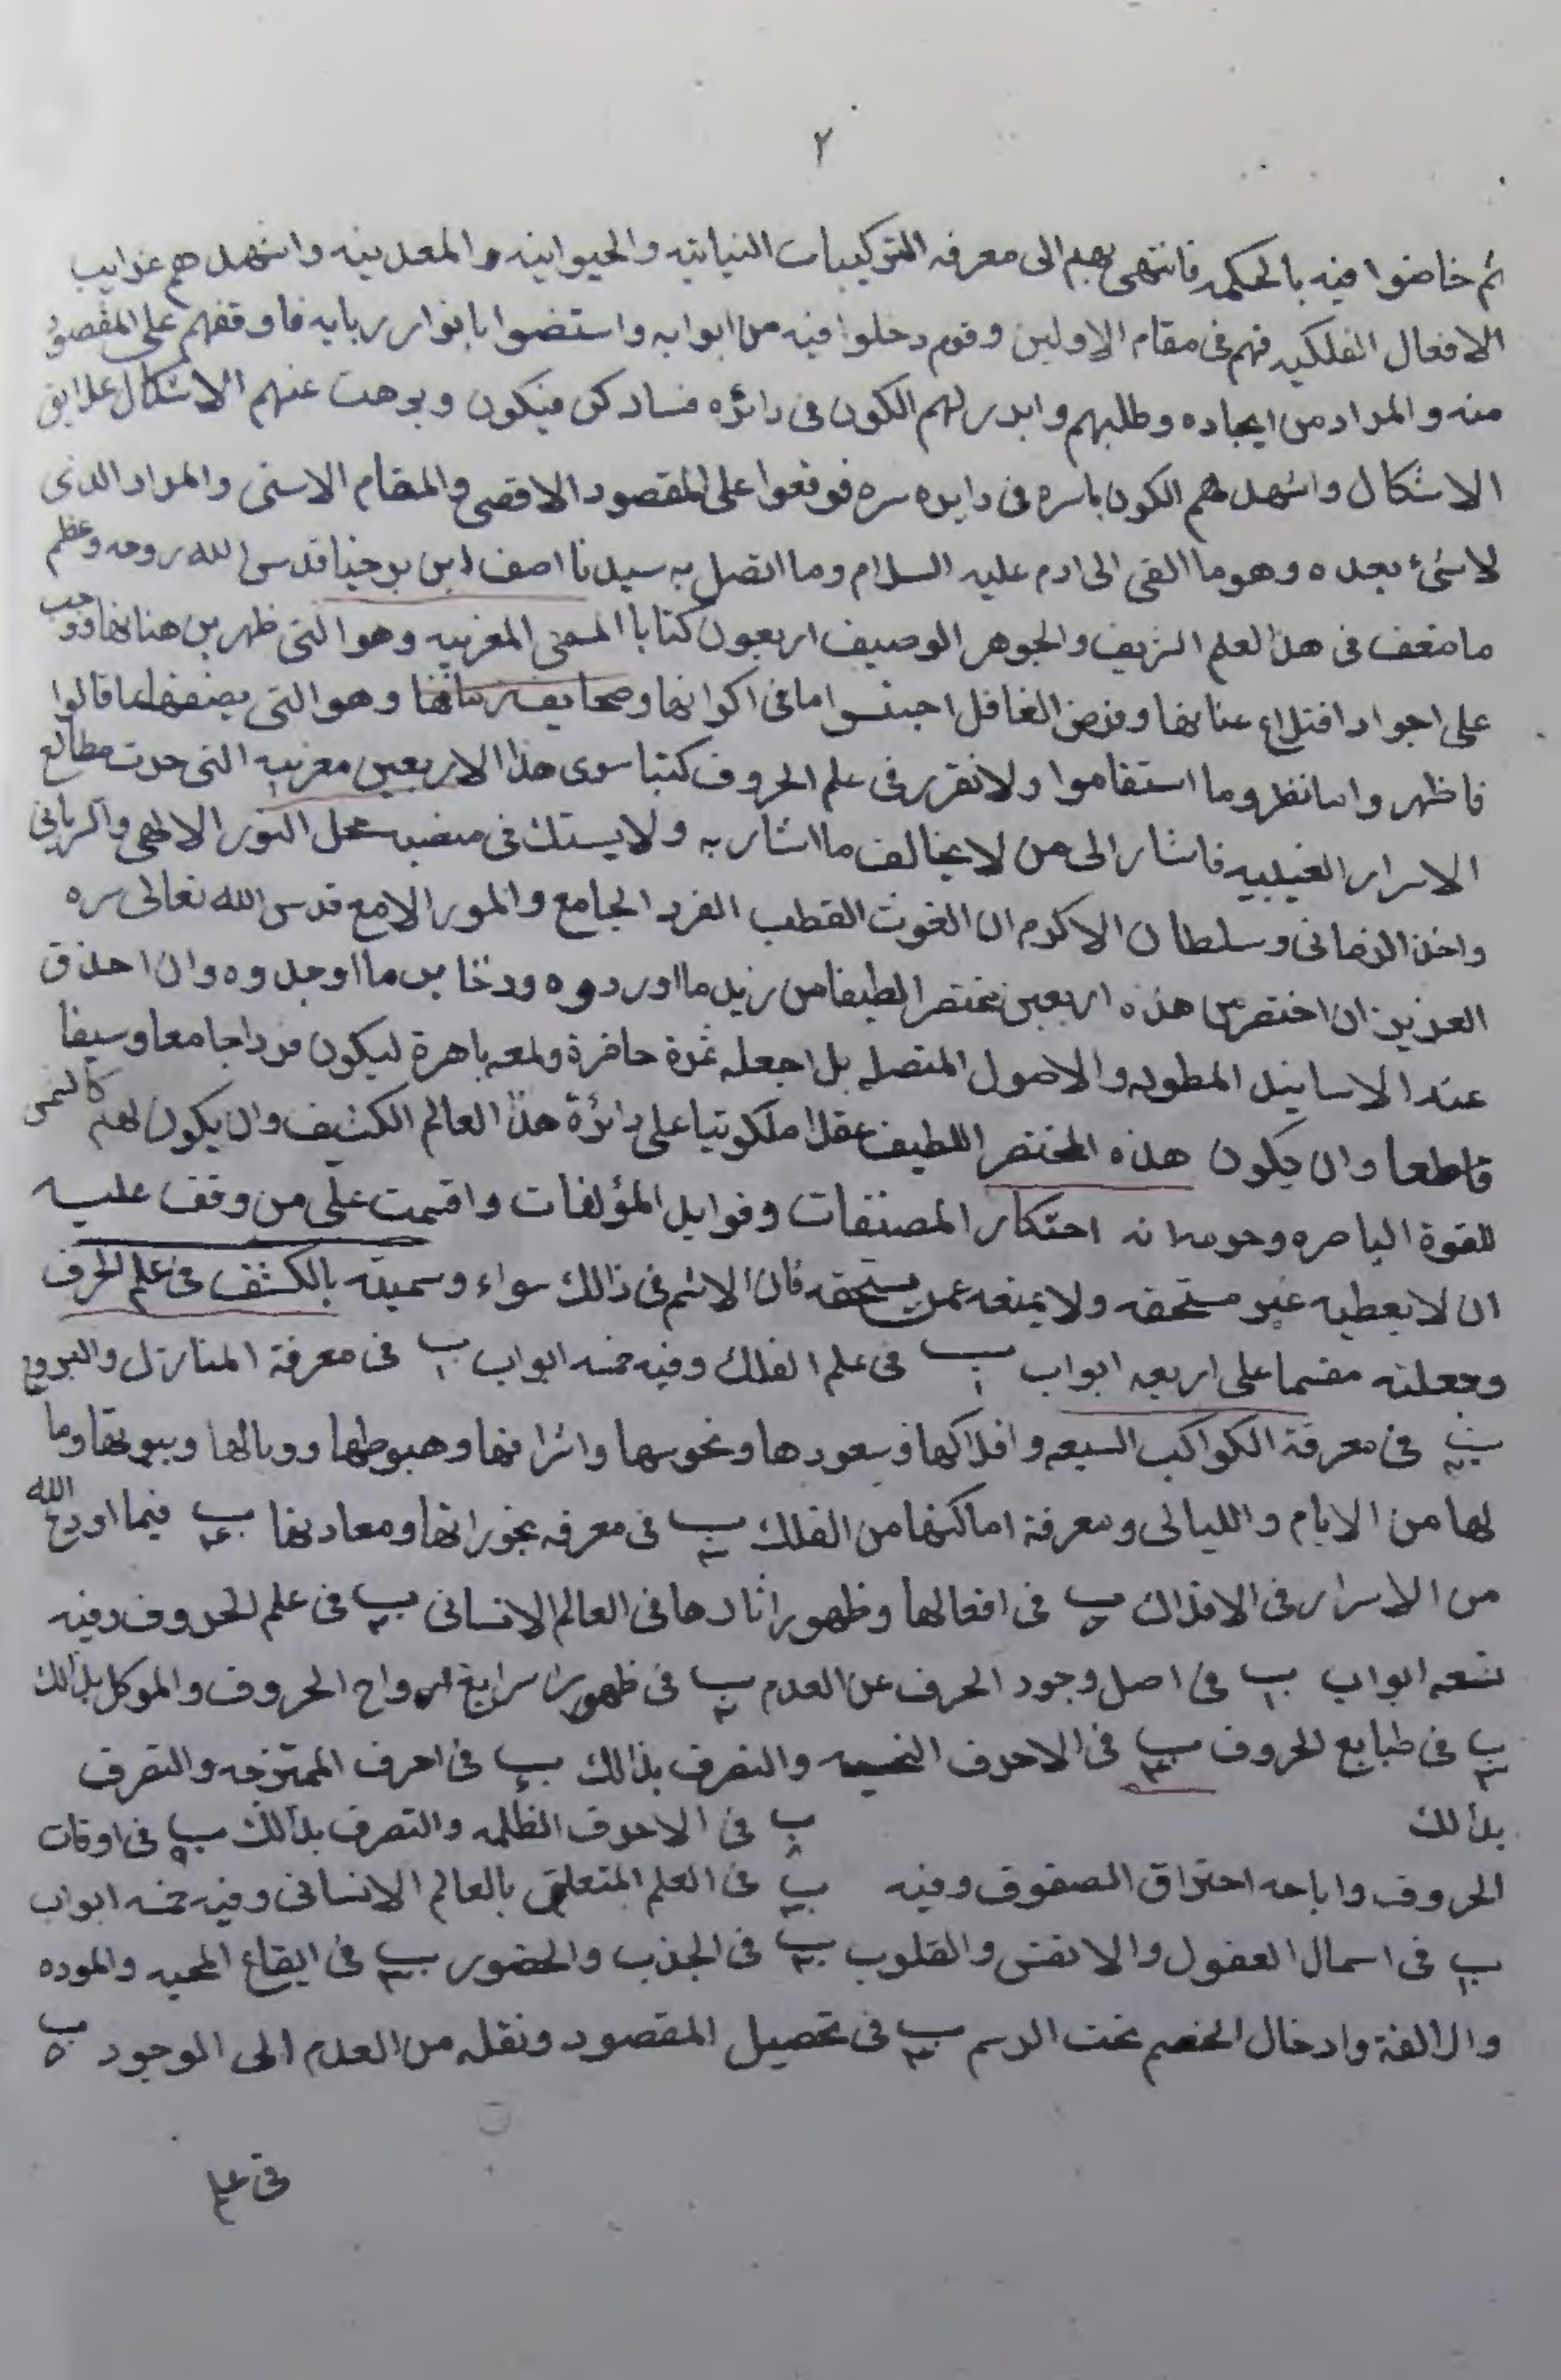 ٢
ثم خاضوا فيه بالحكمه فانتهى بهم الى معرفه التركيبات النباتيه والحيوانيه والمعدنيه واشهدهم غرايب
الافعال الفلكيه فهم فى مقام الاولين وقوم دخلوا فيه من ابوابه واستضوا بانوار ربابه فاوقفهم على المقصود
منه والمراد من ايجاده وطلبهم وابدر لهم الكون فى دائره كن فيكون وبرهت عنهم الاشكال علايق
الاشكال واشهدهم الكون باسره فى دايره سره فوقعوا على المقصود الاقصى والمقام الاسنى والمراد الذى
لاشئ بعده وهو ما القى الى ادم عليه السلام وما اتصل به سيدنا اصف ابن برخيا قدس الله روحه وعظم
ما فى هذا لعلم الشريف والجوهر الوصيف اربعون كتابا المغربيه وهو التى ظهر من
على اجواد وفرض الغافل اما فى اكوانها وصحايف وهو التى قالوا
فاظهر وما استقاموا ولا نقرر فى علم الحروف كتبا سوى هذا الاربعين مغربيه التى حوت مطالع
الاسرار الغيبيه فاشار الى من لا يخالف ما اشار به ولا يستك فى محل النور الالهى والربانى
وسلطان الاكرم ان الغوث القطب الفرد الجامع والمور الامع قدس الله تعالى سره
العزيز ان اختصر من هذه اربعين مختصرا لطيفا من زبد ما اوردوه ودخاير ما اوجدوه وان احذق
عند الاسانيد المطوله والاصول المتصله بل اجعله ثمرة حاضرة ولمعه باهرة ليكون فردا جامعا وسيفا
قاطعا وان يكون هذه المختصر اللطيف عقلا ملكوتيا على دائرة هذا العالم الكثيف وان يكون لهم كالشمس
للقوة الباصره احتكار المصنفات وفوايد المؤلفات واقسمت على من وقف عليه
ان لا يعطيه غير مستحقه ولا يمنعه عمن يستحقه فان الاثم فى ذالك سواء وسميته بالكشف فى علم الحرف
وجعلته مقسما على اربعه ابواب ب١ فى علم الفلك وفيه خمسه ابواب ب١ فى معرفة المنازل والبروج
ب٢ فى معرفة الكواكب السبعه وافلاكها وسعودها ونحوسها واشرافها وهبوطها ووبالها وبيوتها وما
لها من الايام والليالى ومعرفة اماكنها من الفلك ب٣ فى معرفه بخوراتها ومعادنها ب٤ فيما اودع الله
من الاسرار فى الافلاك ب٥ فى افعالها وظهور اثارها فى العالم الانسانى ب٢ فى علم الحروف وفيه
تسعه ابواب ب١ فى اصل وجود الحرف عن العدم ب٢ فى ظهور ارواح الحروف والموكل بذالك
ب٣ فى طبايع الحروف ب٤ فى الاحرف والتصرف بذالك ب فى احرف الممتزجه والتصرف
بذالك ب٨ فى الاحرف الظلمه والتصرف بذالك ب٩ فى اوقات
الحروف واباحه احتراق الصفوف وفيه ب٣ فى العلم المتعلق بالعالم الانسانى وفيه خمسه ابواب
ب١ فى اسمال العقول والانفس والقلوب ب٢ فى الجذب والحضور ب٣ فى ايقاع المحبه والموده
والالفة وادخال الخصم تحت الرسم ب٤ فى تحصيل المقصود ونقله من العدم الى الوجود ب٥
فى علم